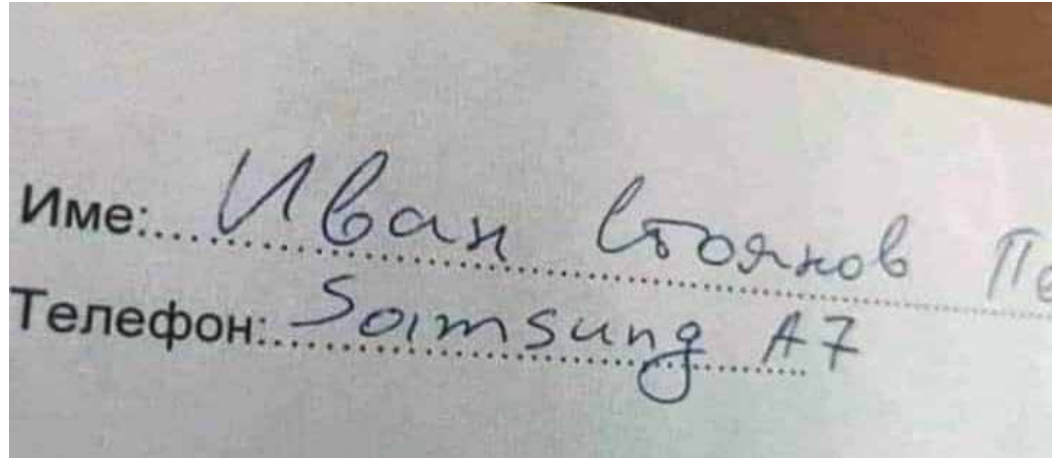 Име: Иван Стоянов
Телефон: Samsung A7